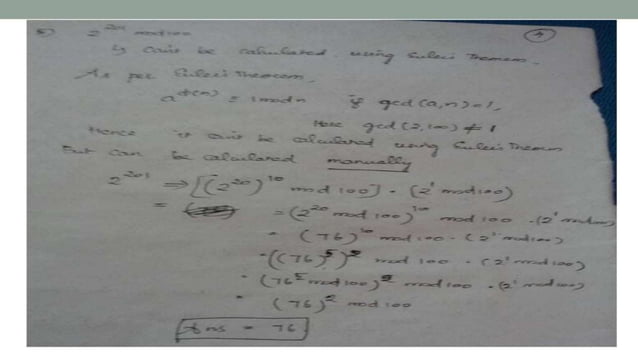 5) 2^201 mod 100 (9)
↳ can't be calculated using Euler's Theorem.
As per Euler's Theorem,
a^φ(n) ≡ 1 mod n if gcd(a,n)=1,
Here gcd(2,100) ≠ 1
Hence it can't be calculated using Euler's Theorem
But can be calculated manually
2^201 ⇒ [(2^20)^10 mod 100] · (2^1 mod 100)
= = (2^20 mod 100)^10 mod 100 · (2^1 mod 100)
= (76)^10 mod 100 · (2^1 mod 100)
= ((76)^5)^2 mod 100 · (2^1 mod 100)
= (76^5 mod 100)^2 mod 100 · (2^1 mod 100)
= (76)^2 mod 100
Ans = 76